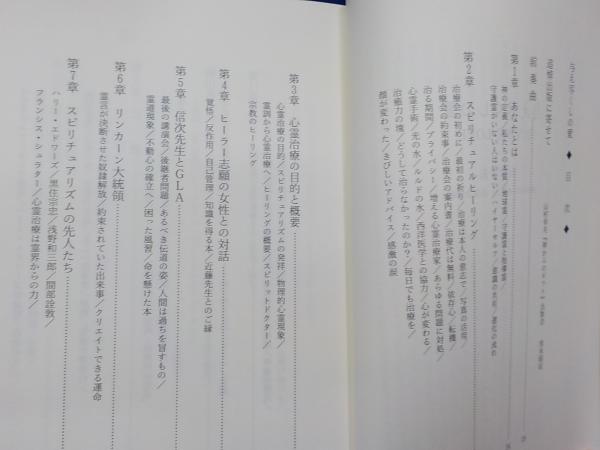 追悼出版に寄せて
前奏曲
第1章 あなたとは
神の定義／私たちの本質／地球霊／守護霊と指導霊／
守護霊がいない人はいない／ハイヤーセルフ／意識の共有／進化の流れ
第2章 スピリチュアルヒーリング
治療会の初めに／最初の祈り／治療は本人の意志で／写真の活用／
治療会の約束事／治療会の案内書／治療代は無料／依存心／転機／
治る期間／プライバシー／増える心霊治療家／あらゆる問題に対処／
心霊手術／光の水／ルルドの水／西洋医学との協力／心が変わる／
治癒力の塊／どうして治らなかったのか？／毎日でも治療を／
顔が変わった／きびしいアドバイス／感激の涙
第3章 心霊治療の目的と概要
心霊治療の目的／スピリチュアリズムの発祥／物理的心霊現象／
霊訓から心霊治療へ／ヒーリングの概要／スピリットドクター／
宗教のヒーリング
第4章 ヒーラー志願の女性との対話
覚悟／反作用／自己管理／知識を得る本／近藤先生とのご縁
第5章 信次先生とGLA
最後の講演会／後継者問題／あるべき伝道の姿／人間は過ちを冒すもの／
霊道現象／不動心の確立へ／困った風習／命を懸けた本
第6章 リンカーン大統領
霊言が決断させた奴隷解放／約束されていた出来事／クリエイトできる運命
第7章 スピリチュアリズムの先人たち
ハリー・エドワーズ／黒住宗忠／浅野和三郎／間部詮敦／
フランシス・シュラター／心霊治療は霊界からの力／